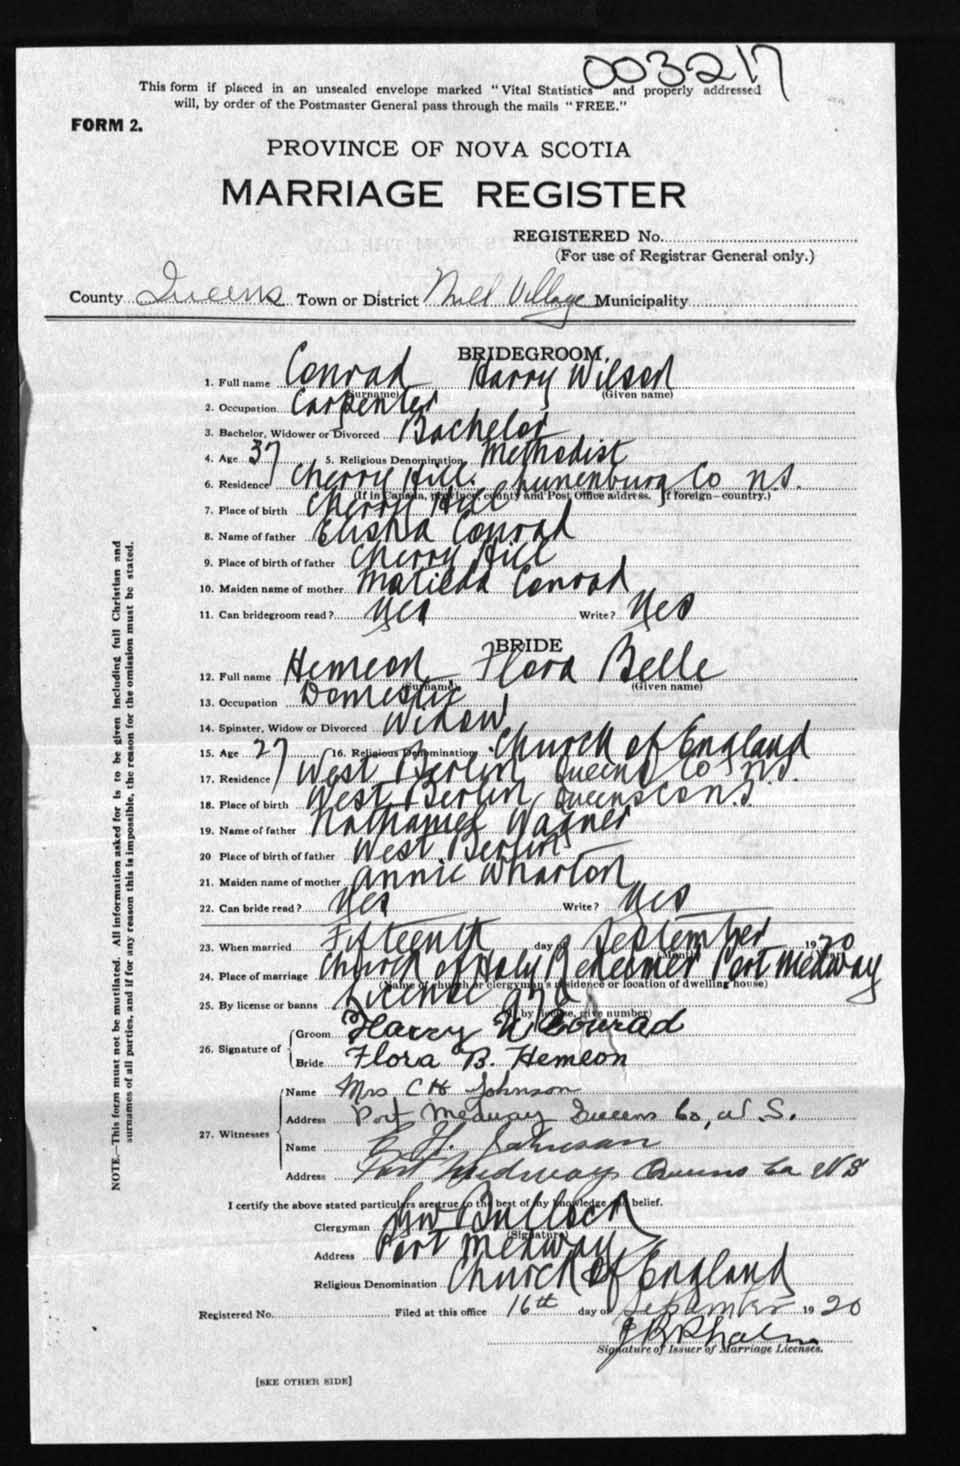 003217
This form if placed in an unsealed envelope marked "Vital Statistics" and properly addressed
will, by order of the Postmaster General pass through the mails "FREE."
FORM 2.
PROVINCE OF NOVA SCOTIA
MARRIAGE REGISTER
REGISTERED No.
(For use of Registrar General only.)
County Queens Town or District Mill Village Municipality
BRIDEGROOM.
1. Full name Conrad Harry Wilson
(Surname) (Given name)
2. Occupation Carpenter
3. Bachelor, Widower or Divorced Bachelor
4. Age 37 5. Religious Denomination Methodist
6. Residence Cherry Hill. Lunenburg Co N.S.
(If in Canada, province, county and Post Office address. If foreign—country.)
7. Place of birth Cherry Hill
8. Name of father Elisha Conrad
9. Place of birth of father Cherry Hill
10. Maiden name of mother Matilda Conrad
11. Can bridegroom read? Yes Write? Yes
BRIDE
12. Full name Hemeon Flora Belle
(Surname) (Given name)
13. Occupation Domestic
14. Spinster, Widow or Divorced Widow
15. Age 27 16. Religious Denomination Church of England
17. Residence West Berlin Queens Co N.S.
18. Place of birth West Berlin, Queens Co N.S
19. Name of father Nathaniel Wagner
20 Place of birth of father West Berlin
21. Maiden name of mother Annie Wharton
22. Can bride read? Yes Write? Yes
23. When married Fifteenth day of September 1920
(Month)
24. Place of marriage Church of Holy Redeemer Port Medway
(Name of church or clergyman's residence or location of dwelling house)
25. By license or banns License
(If by license, give number)
26. Signature of Groom Harry W Conrad
Bride Flora B. Hemeon
27. Witnesses Name Mrs C H Johnson
Address Port Medway Queens Co, N. S.
Name C. H. Johnson
Address Port Medway Queens Co NS
I certify the above stated particulars are true to the best of my knowledge and belief.
Clergyman Bullock
(Signature)
Address Port Medway
Religious Denomination Church of England
Registered No. Filed at this office 16th day of September 1920
Signature of Issuer of Marriage Licenses.
[SEE OTHER SIDE]
NOTE.—This form must not be mutilated. All information asked for is to be given including full Christian and
surnames of all parties, and if for any reason this is impossible, the reason for the omission must be stated.